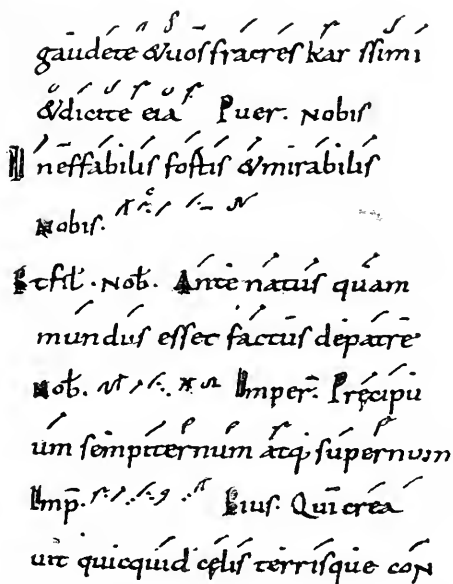 gaudete & uos fratres kar issimi
& dicite eia Puer. nobis
Ineffabilis fortis & mirabilis
nobis.
Et fil. nob. Ante natus quam
mundus esset factus de patre
nob. Imper. Precipu
um sempiternum atq; supernum
Imp. Eius. Qui crea
uit quicquid celis terrisque con